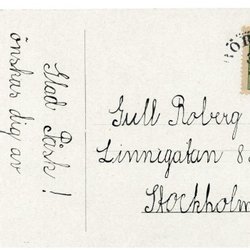 Glad Påsk!
önskar dig av
Gull Roberg
Linnégatan 8
Stockholm